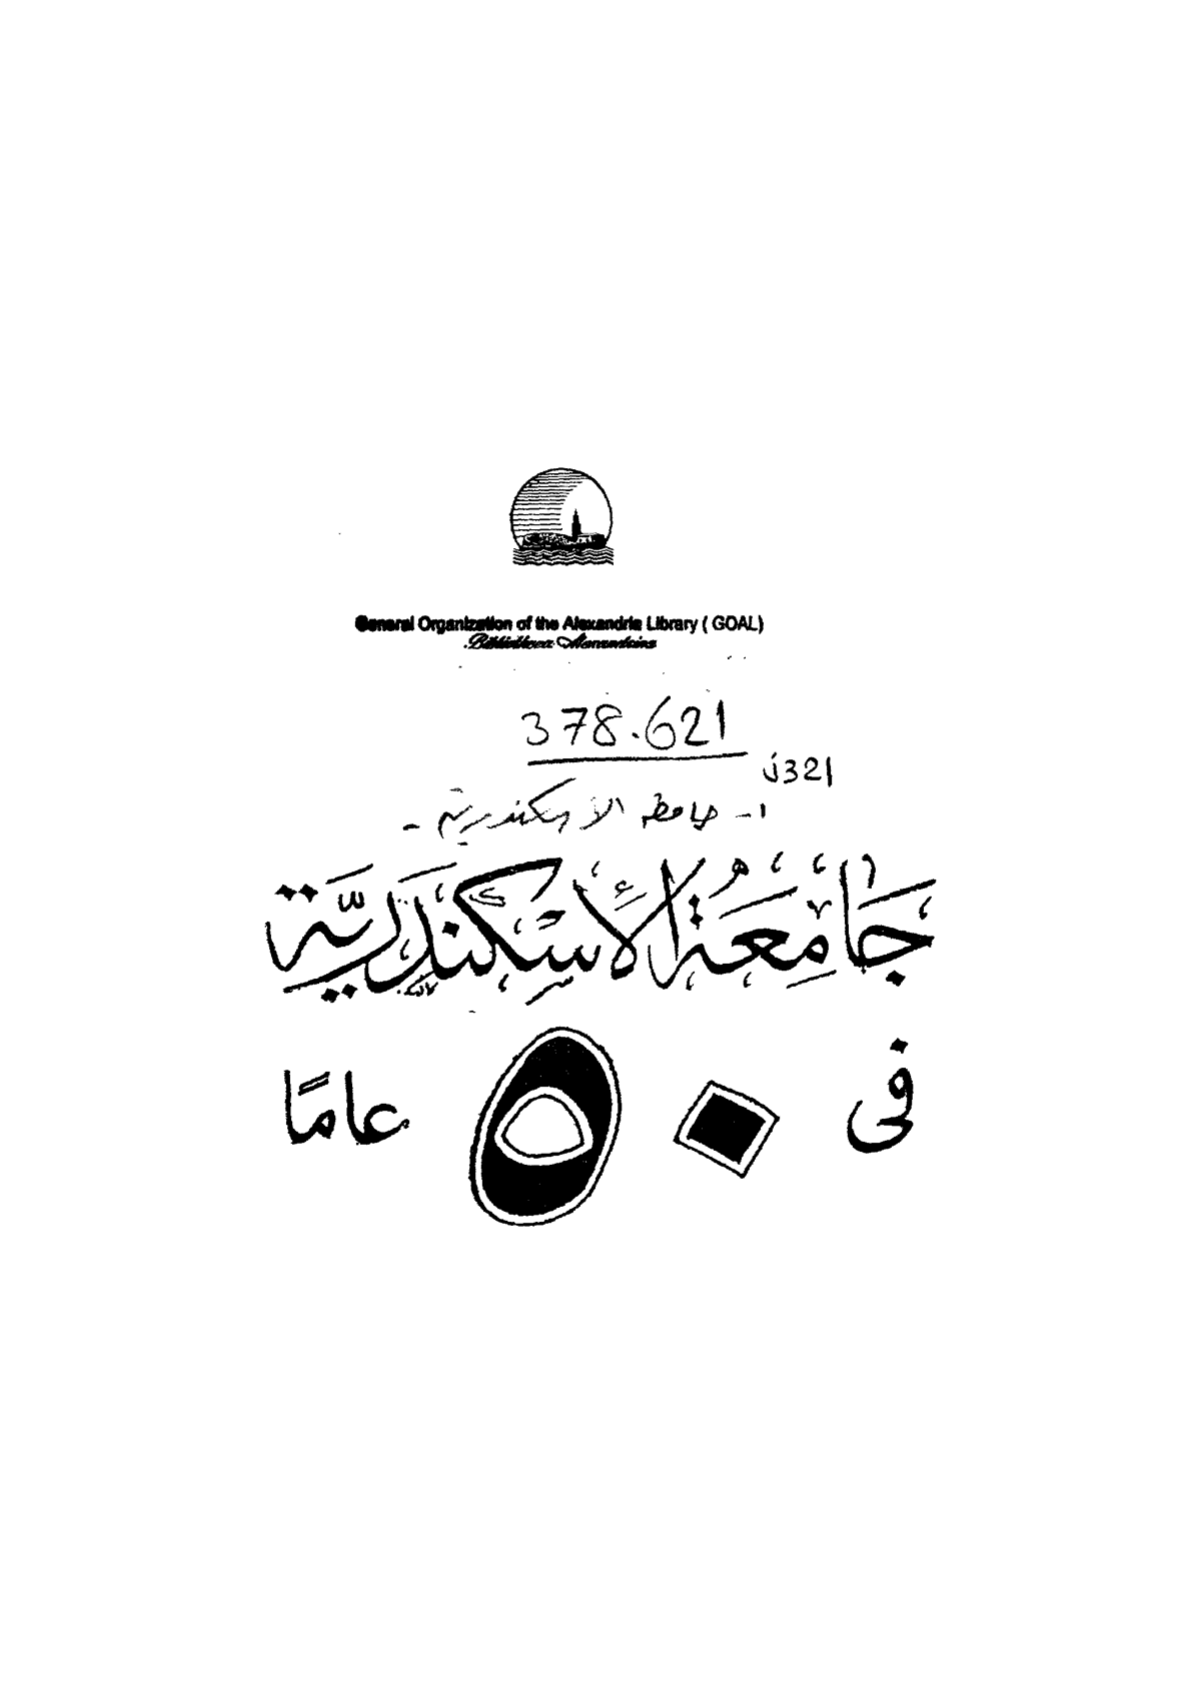 General Organization of the Alexandria Library ( GOAL)
Bibliotheca Alexandrina
378.621
ز321
١- جامعة الاسكندرية -
جَامِعَةُ الإِسْكَنْدَرِيَّة
فى ٥٠ عامًا